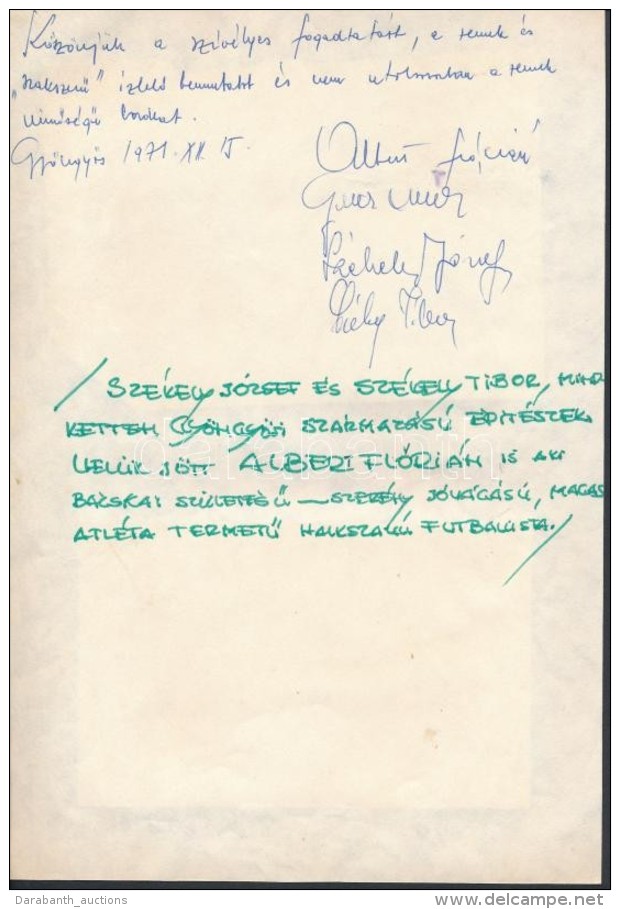 Köszönjük a szívélyes fogadtatást, a remek és
„szakszerű" ízlelő bemutatót és nem utolsósorban a remek
minőségű borokat.
Gyöngyös 1971. XII. 15.
Albert Flórián
Székely József
Székely Tibor
SZÉKELY JÓZSEF ÉS SZÉKELY TIBOR, MIND
KETTEN GYÖNGYÖSI SZÁRMAZÁSÚ ÉPITÉSZEK
VELÜK JÖTT ALBERT FLÓRIÁN IS AKI
BÁCSKAI SZÜLETÉSŰ — SZERÉNY JÓVÁGÁSÚ, MAGAS
ATLÉTA TERMETŰ HALKSZAVÚ FUTBALISTA.
darabanth
Darabanth_auctions
delcampe.net